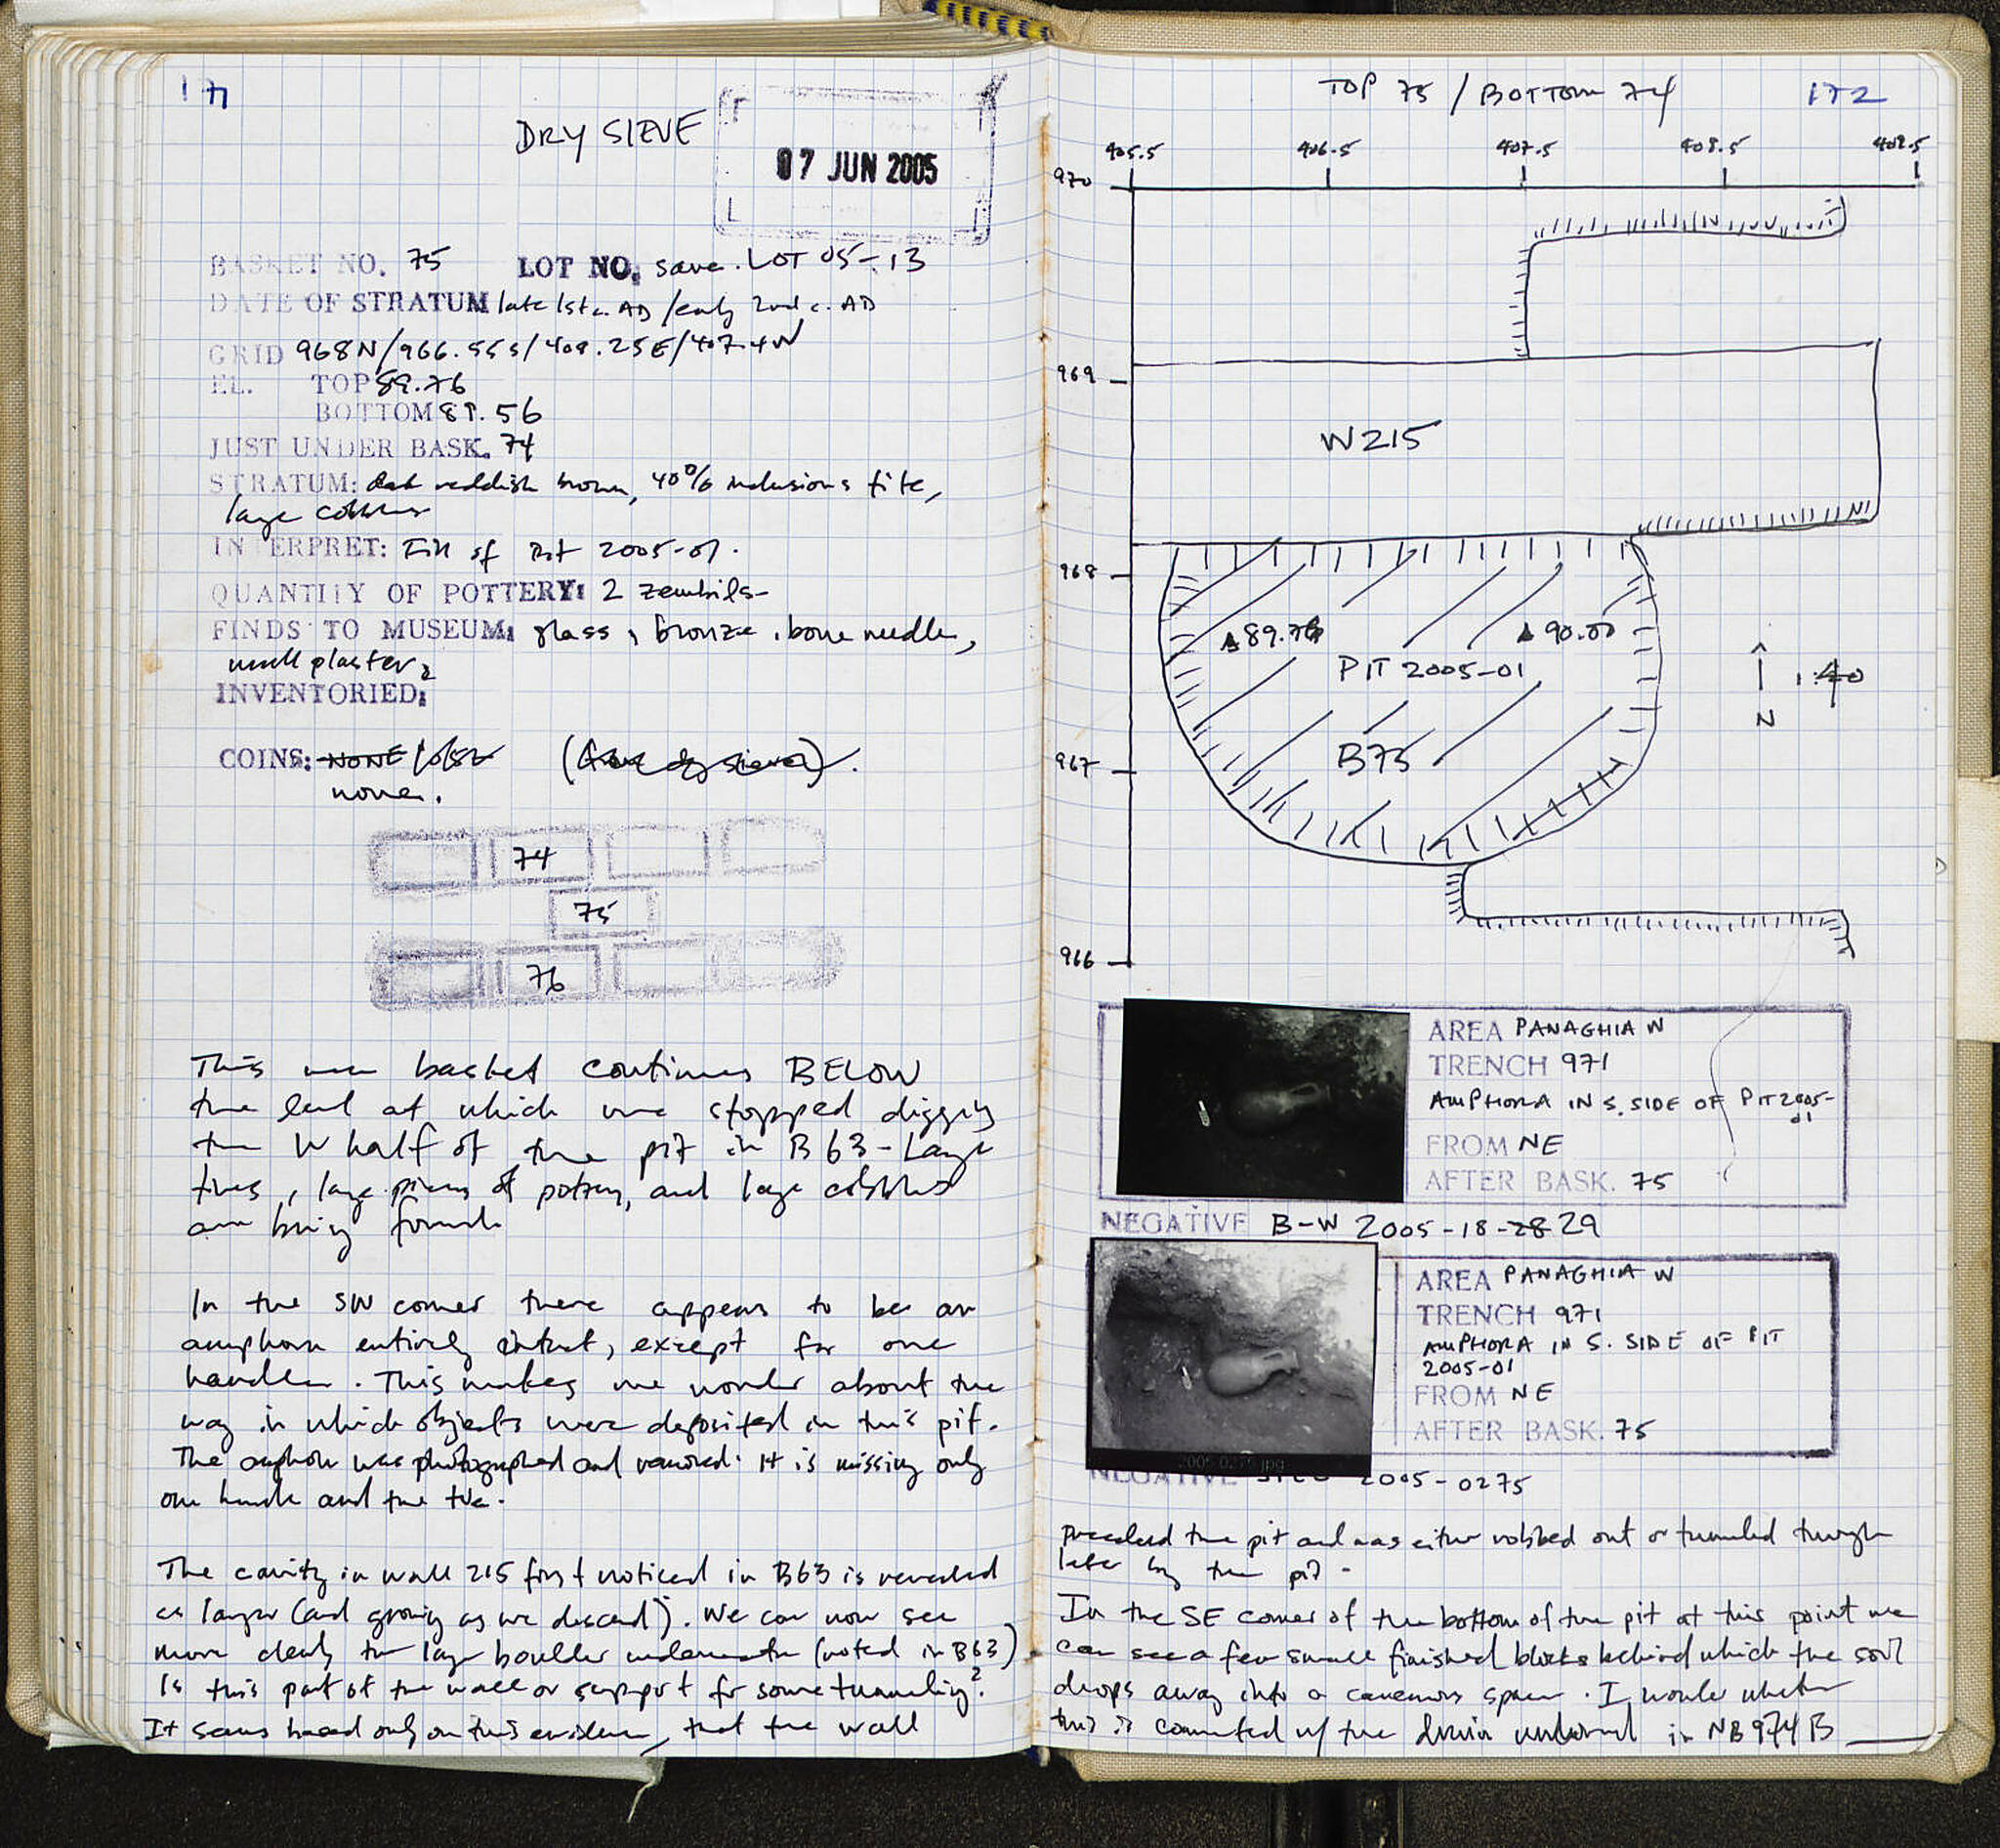 171
DRY SIEVE
07 JUN 2005
BASKET NO. 75 LOT NO. save. LOT 05-13
DATE OF STRATUM late 1st c. AD / early 2nd c. AD
GRID 968N/966.55S/409.25E/407.4W
EL. TOP 89.76
BOTTOM 89.56
JUST UNDER BASK. 74
STRATUM: dark reddish brown, 40% inclusions tile,
large cobbles
INTERPRET: Fill of Pit 2005-01.
QUANTITY OF POTTERY: 2 zembils
FINDS TO MUSEUM: glass, bronze, bone needle,
wall plaster
INVENTORIED:
COINS: NONE
none.
74
75
76
This new basket continues BELOW
the level at which we stopped digging
the W half of the pit in B63 - Large
tiles, large pieces of pottery, and large cobbles
are being found
In the SW corner there appears to be an
amphora entirely intact, except for one
handle. This makes me wonder about the
way in which objects were deposited in this pit.
The amphora was photographed and removed. It is missing only
one handle and the toe.
The cavity in wall 215 first noticed in B63 is revealed
as larger (and growing as we descend). We can now see
more clearly the large boulder underneath (noted in B63)
Is this part of the wall or support for some tunneling?
It seems based only on this evidence, that the wall
TOP 75 / BOTTOM 74 172
405.5 406.5 407.5 408.5 409.5
970
969
W215
968
89.76 90.00
PIT 2005-01
N 1:40
B75
967
966
AREA PANAGHIA W
TRENCH 971
AMPHORA IN S. SIDE OF PIT 2005-
01
FROM NE
AFTER BASK. 75
NEGATIVE B-W 2005-18-28 29
AREA PANAGHIA W
TRENCH 971
AMPHORA IN S. SIDE OF PIT
2005-01
FROM NE
AFTER BASK. 75
2005 0275.jpg
NEGATIVE 2005-0275
preceded the pit and was either robbed out or tunneled through
later by the pit -
In the SE corner of the bottom of the pit at this point we
can see a few small finished blocks behind which the soil
drops away into a cavernous space. I wonder whether
this is connected w/ the drain in NB 974B